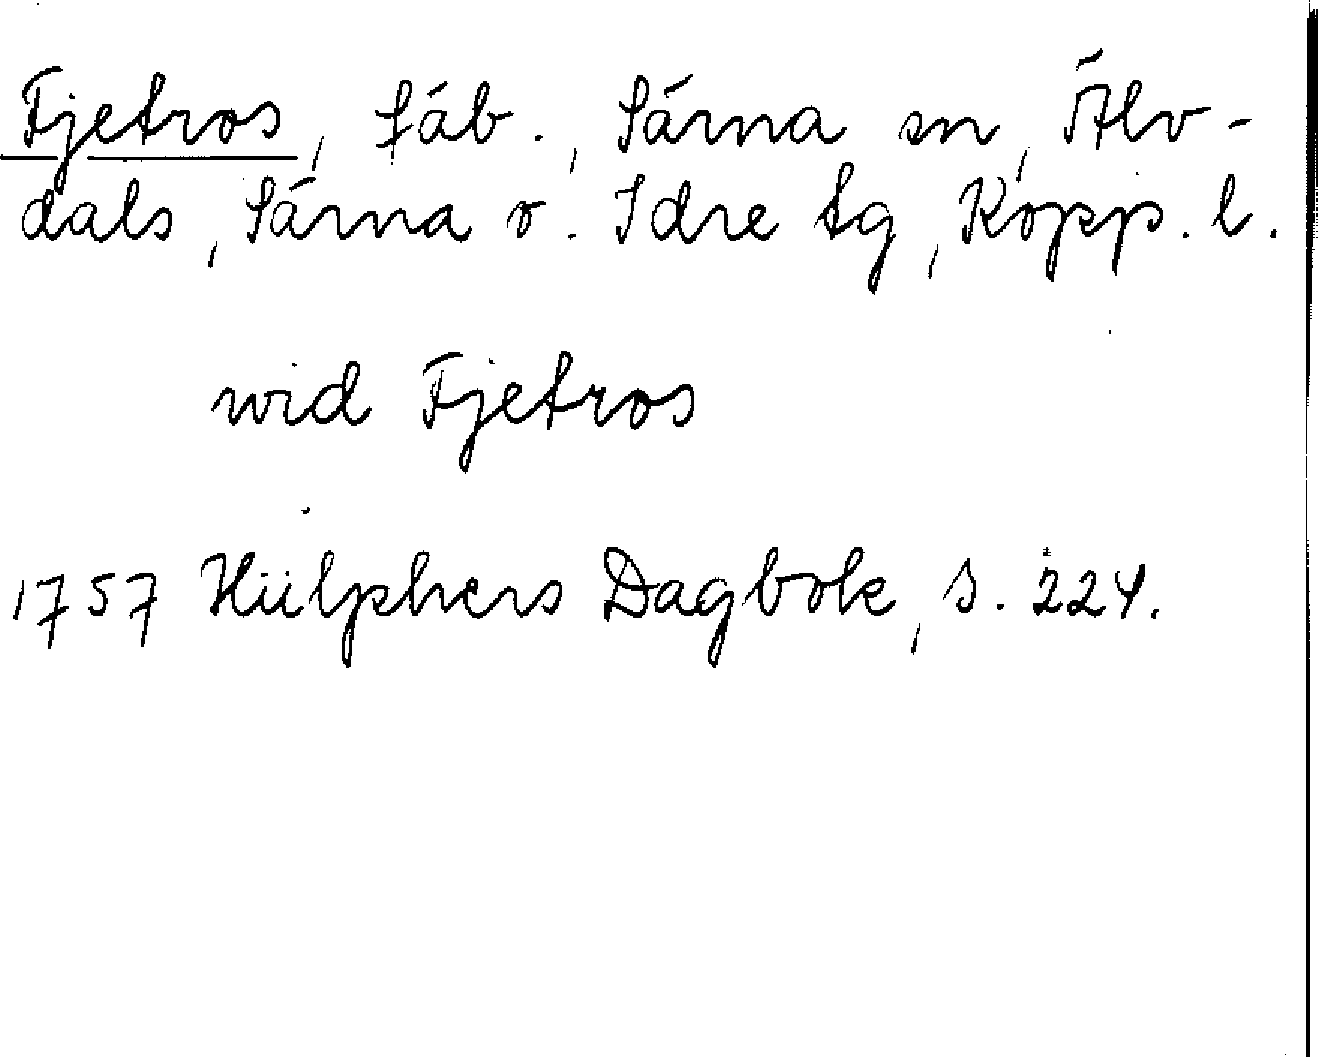 Fjetros, fäb., Särna sn, Älv-
dals, Särna o. Idre tg, Kopp. l.
wid Fjetros
1757 Hülphers Dagbok, s. 224.